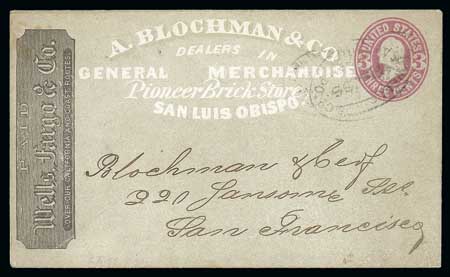 A. BLOCHMAN & CO
DEALERS IN
GENERAL MERCHANDISE
Pioneer Brick Store
SAN LUIS OBISPO
PAID
Wells, Fargo & Co.
OVER OUR CALIFORNIA AND COAST ROUTES
UNITED STATES
THREE CENTS
Blochman & Cerf
220 Sansome St.
San Francisco